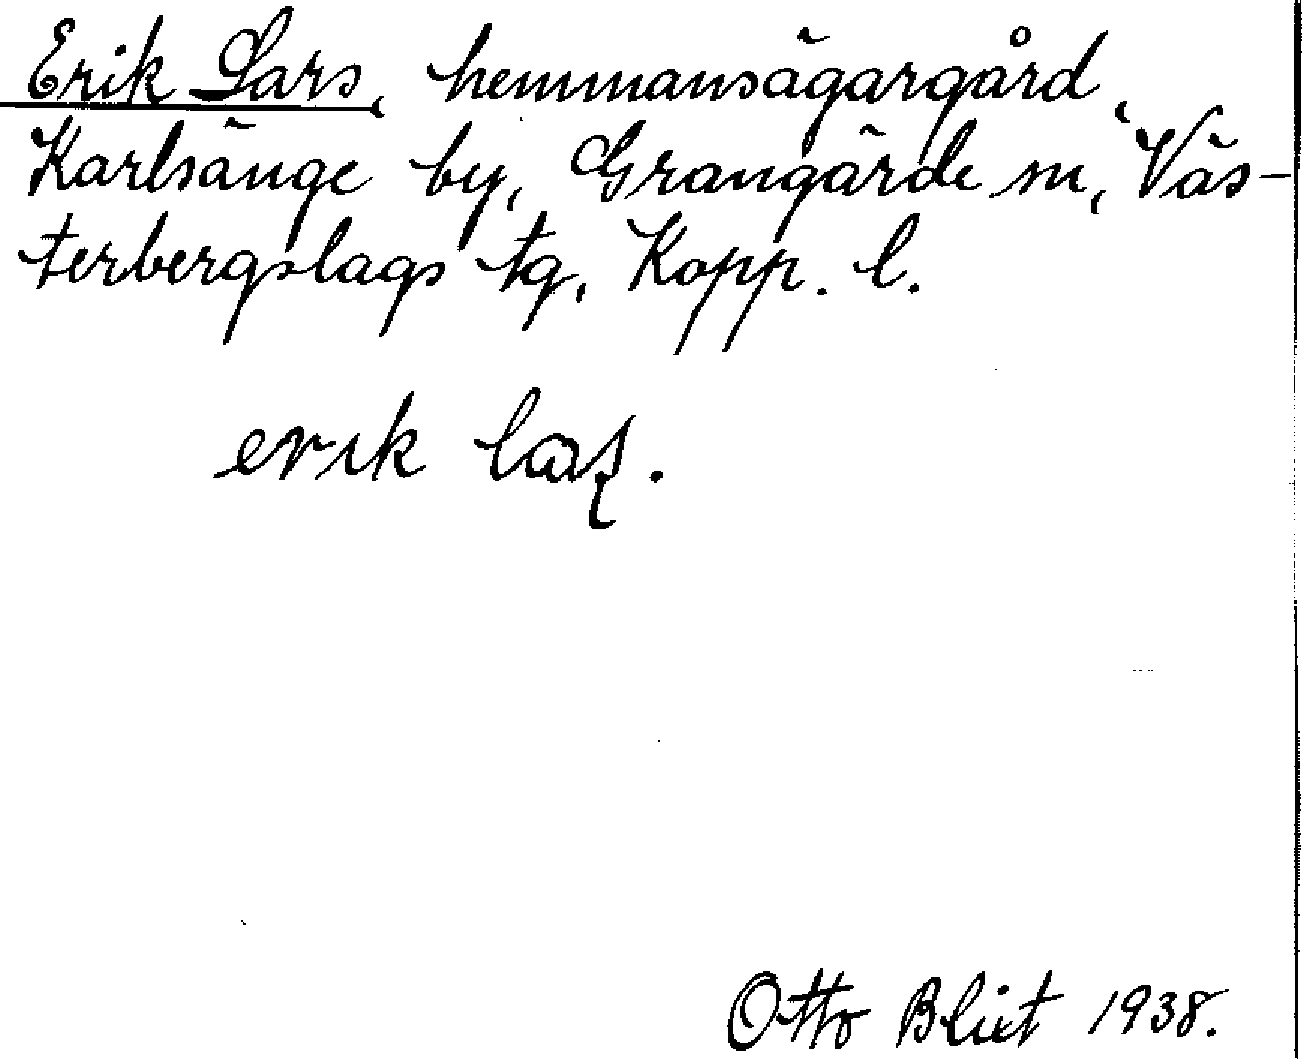 Erik Lars, hemmansägargård,
Karlsänge by, Grangärde sn, Väs-
terbergslags tg, Kopp. l.
erik laʂ.
Otto Blixt 1938.